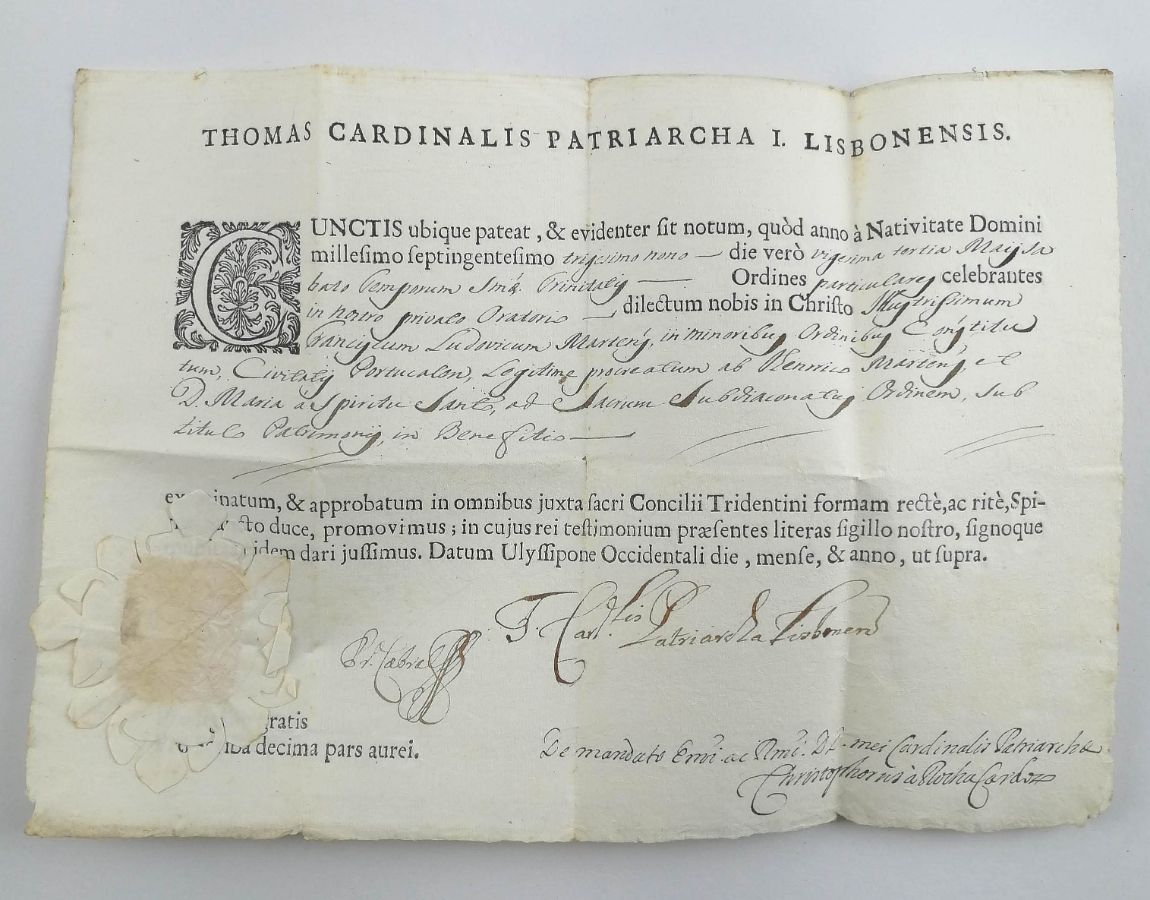 THOMAS CARDINALIS PATRIARCHA I. LISBONENSIS.
CUNCTIS ubique pateat, & evidenter sit notum, quòd anno à Nativitate Domini
millesimo septingentesimo trigesimo nono die verò vigesima tertia Maij Sa
bato Temporum Smæ. Trinitatis Ordines particulares celebrantes
in nostro privato Oratorio dilectum nobis in Christo Illustrissimum
Franciscum Ludovicum Martens, in minoribus Ordinibus Constitu
tum, Civitatis Portucalen, Legitime procreatum ab Henrico Martens, et
D. Maria a Spiritu Santo, ad Sacrum Subdiaconatus Ordinem, sub
titulo Patrimonij, in Benefitio
inatum, & approbatum in omnibus juxta sacri Concilii Tridentini formam rectè, ac ritè, Spi-
cto duce, promovimus; in cujus rei testimonium præsentes literas sigillo nostro, signoque
idem dari jussimus. Datum Ulyssipone Occidentali die, mense, & anno, ut supra.
T. Card.lis Patriarcha Lisbonen
Cabral
gratis
decima pars aurei.
De mandato Emi. ac Rmi. D. mei Cardinalis Patriarchæ
Christophorus à Rocha Cardozo